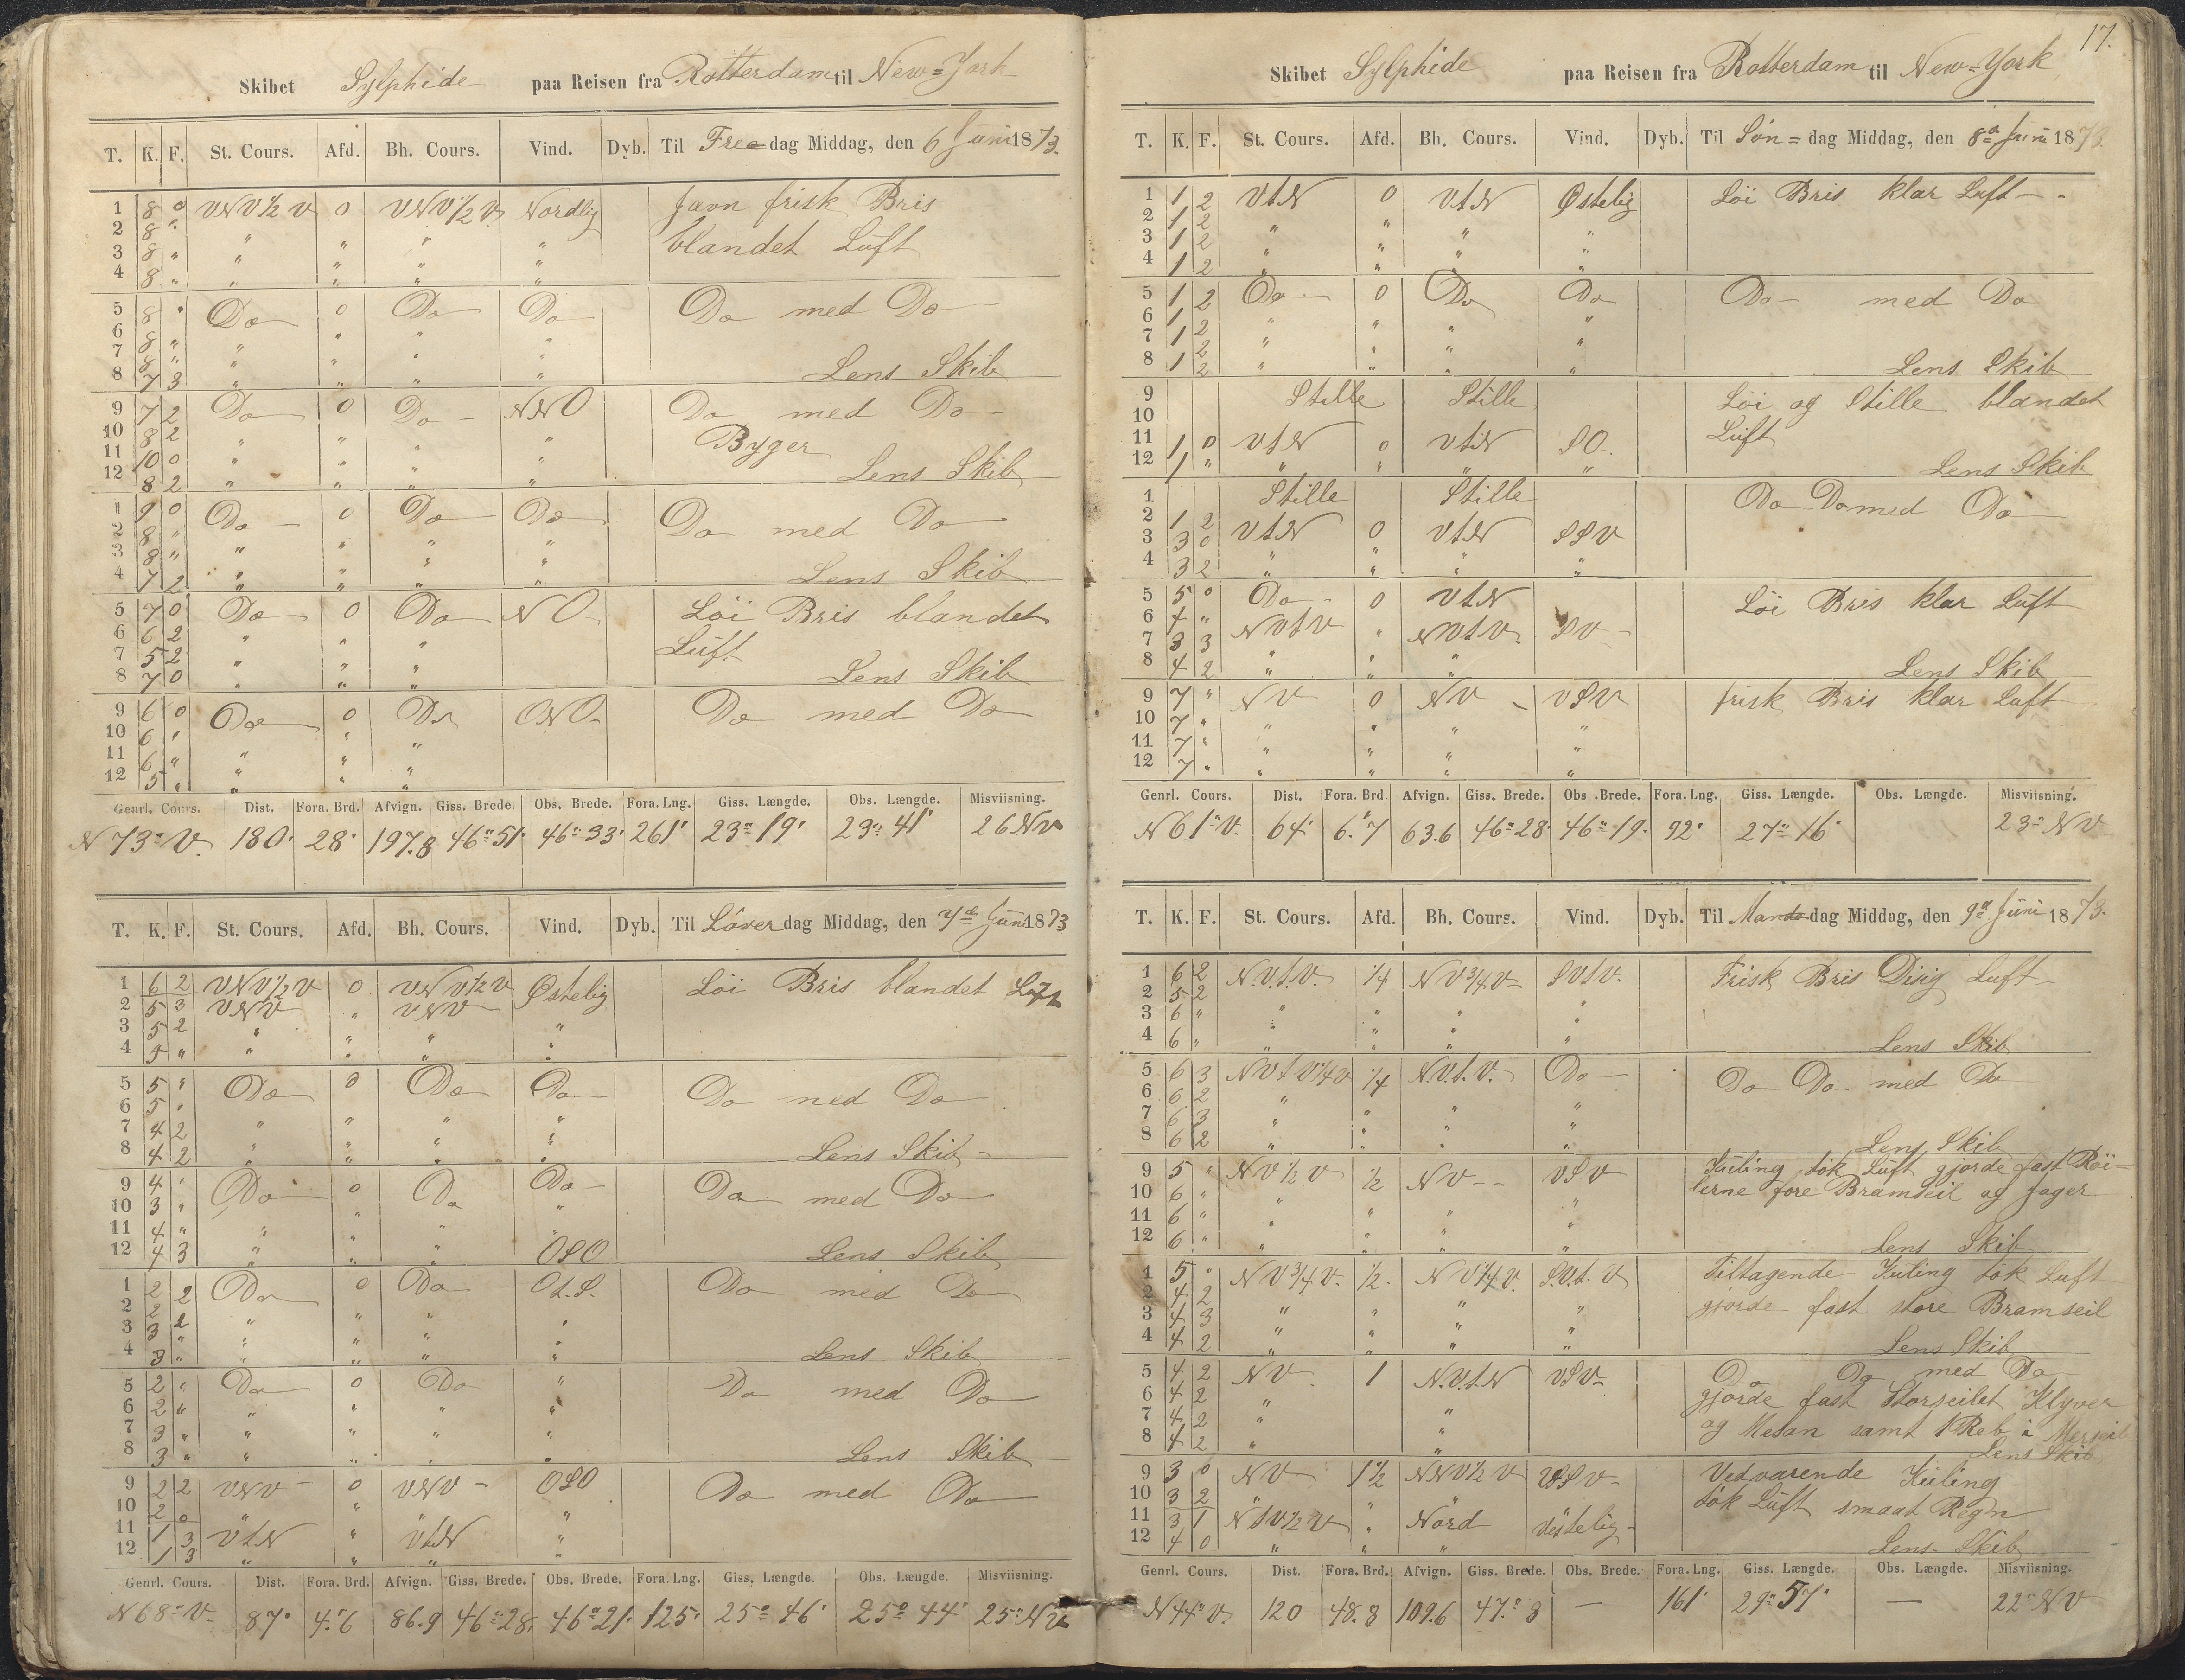 Skibet Sylphide paa Reisen fra Rotterdam til New=York
T. K. F. St. Cours. Afd. Bh. Cours. Vind. Dyb. Til Free-dag Middag, den 6 Juni 1873.
1 8 0 VNV½V 0 VNV½V Nordlig Javn frisk Bris
2 8 " " " " " blandet Luft
3 8 " " " " "
4 8 " " " " "
5 8 " Do 0 Do Do Do med Do
6 8 " " " " "
7 8 " " " " "
8 7 3 " " " " Lens Skib
9 7 2 Do 0 Do NNO Do med Do
10 8 2 " " " " Byger
11 10 0 " " " "
12 8 2 " " " " Lens Skib
1 9 0 Do 0 Do Do Do med Do
2 8 " " " " "
3 8 " " " " "
4 7 2 " " " " Lens Skib
5 7 0 Do 0 Do NO Löi Bris blandet
6 6 2 " " " Luft
7 5 2 " " "
8 7 0 " " " Lens Skib
9 6 0 Do 0 Do ONO Do med Do
10 6 " "
11 6 " " " "
12 5 " " " "
Genrl. Cours. Dist. Fora. Brd. Afvign. Giss. Brede. Obs. Brede. Fora. Lng. Giss. Længde. Obs. Længde. Misviisning.
N 73° V. 180' 28' 197.8 46° 51' 46° 33' 261' 23° 19' 23° 41' 26 NV
T. K. F. St. Cours. Afd. Bh. Cours. Vind. Dyb. Til Löverdag Middag, den 7de Juni 1873
1 6 2 VNV½V 0 VNV½V Østelig Löi Bris blandet Luft
2 5 3 VNV " VNV
3 5 2 " " " "
4 5 " " " " "
5 5 " Do 0 Do Do Do med Do
6 5 "
7 4 2 " " " "
8 4 2 " " " " Lens Skib
9 4 " Do 0 Do Do Do med Do
10 3 " " "
11 4 " " " " "
12 4 3 " " " OSO Lens Skib
1 2 2 Do 0 Do Ot.S. Do med Do
2 2 2 " " " "
3 3 " " " "
4 3 " " " " " Lens Skib
5 2 " Do 0 Do " Do med Do
6 2 " " " " "
7 3 " " " " "
8 3 " " " " " Lens Skib
9 2 2 VNV 0 VNV OSO Do med Do
10 2 0 " " " "
11 1 3 VtN " VtN "
12 1 3 " " " "
Genrl. Cours. Dist. Fora. Brd. Afvign. Giss. Brede. Obs. Brede. Fora. Lng. Giss. Længde. Obs. Længde. Misviisning.
N 68° V. 87' 4.'6 86.9 46° 28' 46° 21' 125' 25° 46' 25° 44' 25° NV
17.
Skibet Sylphide paa Reisen fra Rotterdam til New=York
T. K. F. St. Cours. Afd. Bh. Cours. Vind. Dyb. Til Søn=dag Middag, den 8de Juni 1873.
1 1 2 VtN 0 VtN Østelig Löi Bris klar Luft
2 1 2 " " " "
3 1 2 " " " "
4 1 2 " " " "
5 1 2 Do 0 Do Do Do med Do
6 1 2 " " " "
7 1 2 " " " "
8 1 2 " " " " Lens Skib
9 Stille Stille Löi og Stille blandet
10 Luft
11 1 0 VtN 0 VtN SO.
12 1 " " " " " Lens Skib
1 Stille Stille Do Do med Do
2 1 2
3 3 0 VtN 0 VtN SSV
4 3 2 " " " "
5 5 0 Do 0 VtN Löi Bris klar Luft
6 4 " NVtV " NVtV. SV
7 3 3 " " "
8 4 2 " " " Lens Skib
9 7 " NV 0 NV VSV frisk Bris klar Luft
10 7 " " " " "
11 7 " " " " "
12 7 " " " " "
Genrl. Cours. Dist. Fora. Brd. Afvign. Giss. Brede. Obs. Brede. Fora. Lng. Giss. Længde. Obs. Længde. Misviisning.
N 61° V. 64' 6.'7 63.6 46° 28' 46° 19' 92' 27° 16' 23° NV
T. K. F. St. Cours. Afd. Bh. Cours. Vind. Dyb. Til Mandag Middag, den 9de Juni 1873.
1 6 2 N.V.t.V. ¼ NV¾V SVtV. Frisk Bris Disig Luft
2 5 2 " " " "
3 6 " " " " "
4 6 " " " " " Lens Skib
5 6 3 NVtV¼V ¼ N.V.t.V. Do Do Do med Do
6 6 2 " " " "
7 6 3 " " " "
8 6 2 " " " " Lens Skib
9 5 " NV½V ½ NV VSV Kuling tök Luft gjorde fast Röi-
10 6 " " " " " lerne fore Bramseil og Jager
11 6 " " " " "
12 6 " " " " " Lens Skib
1 5 " NV¾V. ½ NV¼V. S.V.t.V Tiltagende Kuling tök Luft
2 4 2 gjorde fast store Bramseil
3 4 3 " " " "
4 4 2 " " " " Lens Skib
5 4 2 NV 1 N.V.t.N VSV Do Do med Do
6 4 2 " gjorde fast Storseilet Klyver
7 4 2 " " og Mesan samt 1 Reb i Merseil
8 4 2 " " Lens Skib
9 3 0 NV 1½ NNV½V VSV Vedvarende Kuling
10 3 2 " " tök Luft smaat Regn
11 3 1 NtV½V " Nord Vestelig
12 4 0 " " " Lens Skib
Genrl. Cours. Dist. Fora. Brd. Afvign. Giss. Brede. Obs. Brede. Fora. Lng. Giss. Længde. Obs. Længde. Misviisning.
N 44° V. 120 48.8 109.6 47.° 8 — 161' 29° 57' — 22° NV